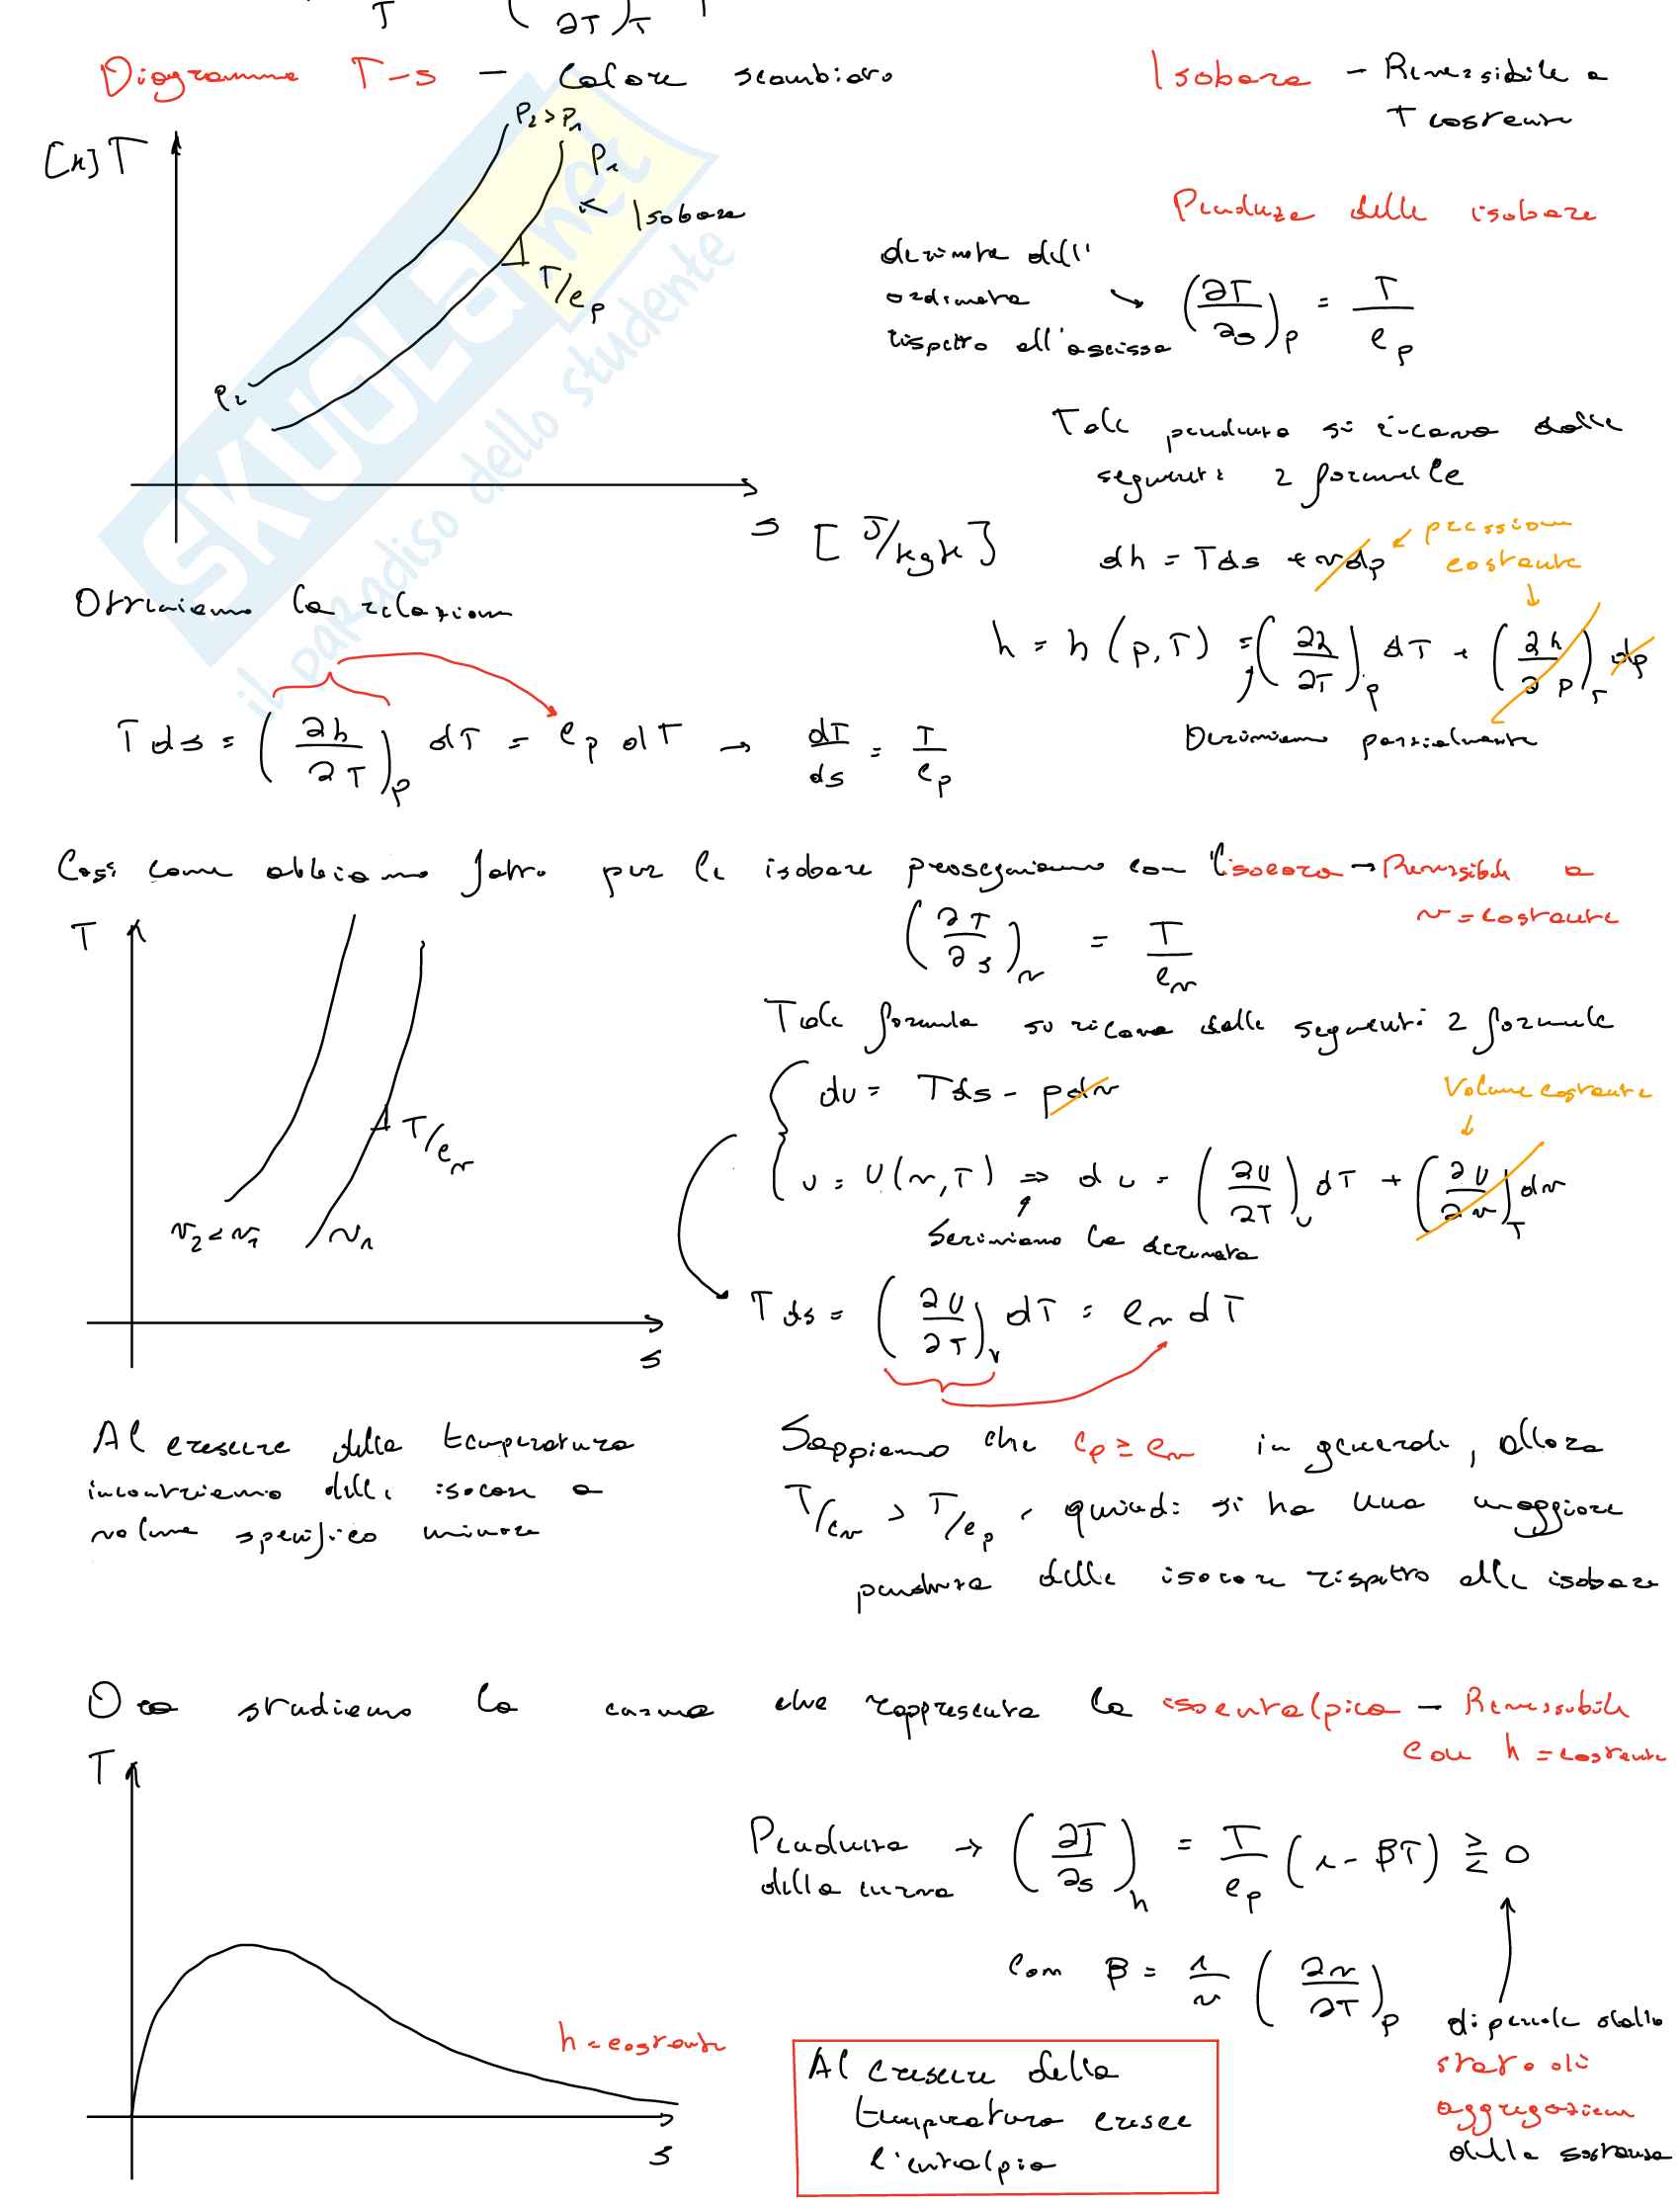 T ( ∂T )T
Diagramma T-s — Calore scambiato
Isobara — Reversibile a
T costante
[K] T
p₂ > p₁
p₁
← Isobara
T/cp
p₂
s [J/kgK]
Pendenza delle isobare
derivata dell'
ordinata
rispetto all'ascissa
→ (∂T/∂s)p = T/cp
Tale pendenza si ricava dalle
seguenti 2 formule
dh = Tds + vdp ← pressione
costante
h = h(p,T) = (∂h/∂T)p dT + (∂h/∂p)T dp
Deriviamo parzialmente
Otteniamo la relazione
Tds = (∂h/∂T)p dT = cp dT → dT/ds = T/cp
Così come abbiamo fatto per le isobare proseguiamo con l'isocora → Reversibile a
v = costante
(∂T/∂s)v = T/cv
T
T/cv
v₂ < v₁
v₁
s
Tale formula si ricava dalle seguenti 2 formule
du = Tds - pdv
Volume costante
u = u(v,T) ⇒ du = (∂u/∂T)v dT + (∂u/∂v)T dv
Scriviamo la derivata
Tds = (∂u/∂T)v dT = cv dT
Al crescere della temperatura
incontriamo delle isocore a
volume specifico minore
Sappiamo che cp ≥ cv in generale, allora
T/cv > T/cp, quindi si ha una maggiore
pendenza delle isocore rispetto alle isobare
Ora studiamo la curva che rappresenta la isoentalpica — Reversibile
con h = costante
T
h = costante
s
Pendenza
della curva
→ (∂T/∂s)h = T/cp (1 - βT) ≷ 0
Con β = 1/v (∂v/∂T)p
dipende dallo
stato di
aggregazione
della sostanza
Al crescere della
temperatura cresce
l'entalpia
SKUOLA.net
il paradiso dello studente